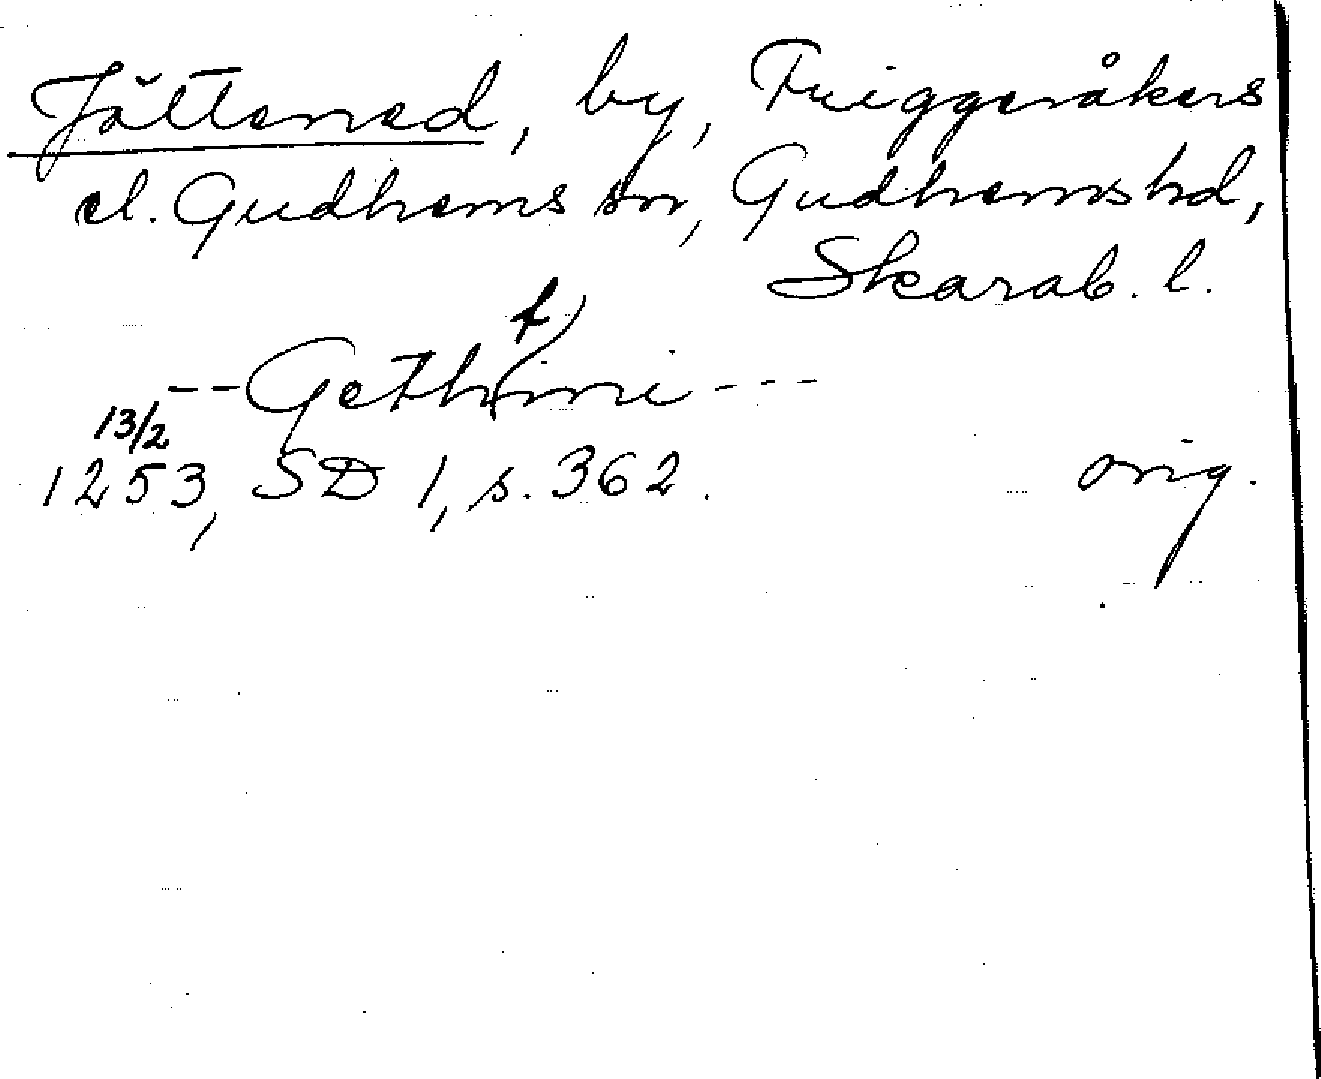 Jättened, by, Friggeråkers
el. Gudhems sn, Gudhems hd,
Skarab. l.
t)
-- Gethmi ---
13/2
1253, SD 1, s. 362. orig.